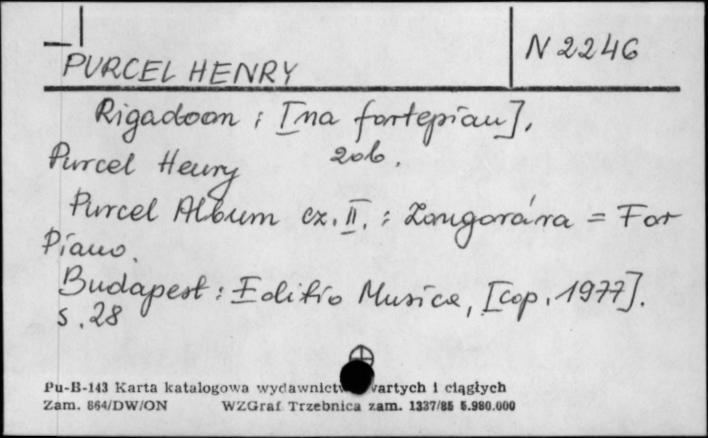 N 2246
PURCEL HENRY
Rigadoon : [na fortepian].
Purcel Henry zob.
Purcel Album cz. II. : Zongorára = For
Piano.
Budapest : Editio Musica, [cop. 1977].
s. 28
Pu-B-143 Karta katalogowa wydawnictw zwartych i ciągłych
Zam. 864/DW/ON WZGraf Trzebnica zam. 1337/85 5.980.000